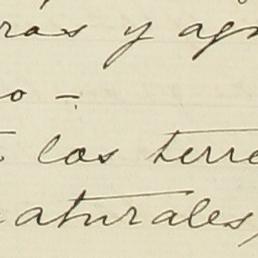 ras y agr
o -
los terre
aturales,